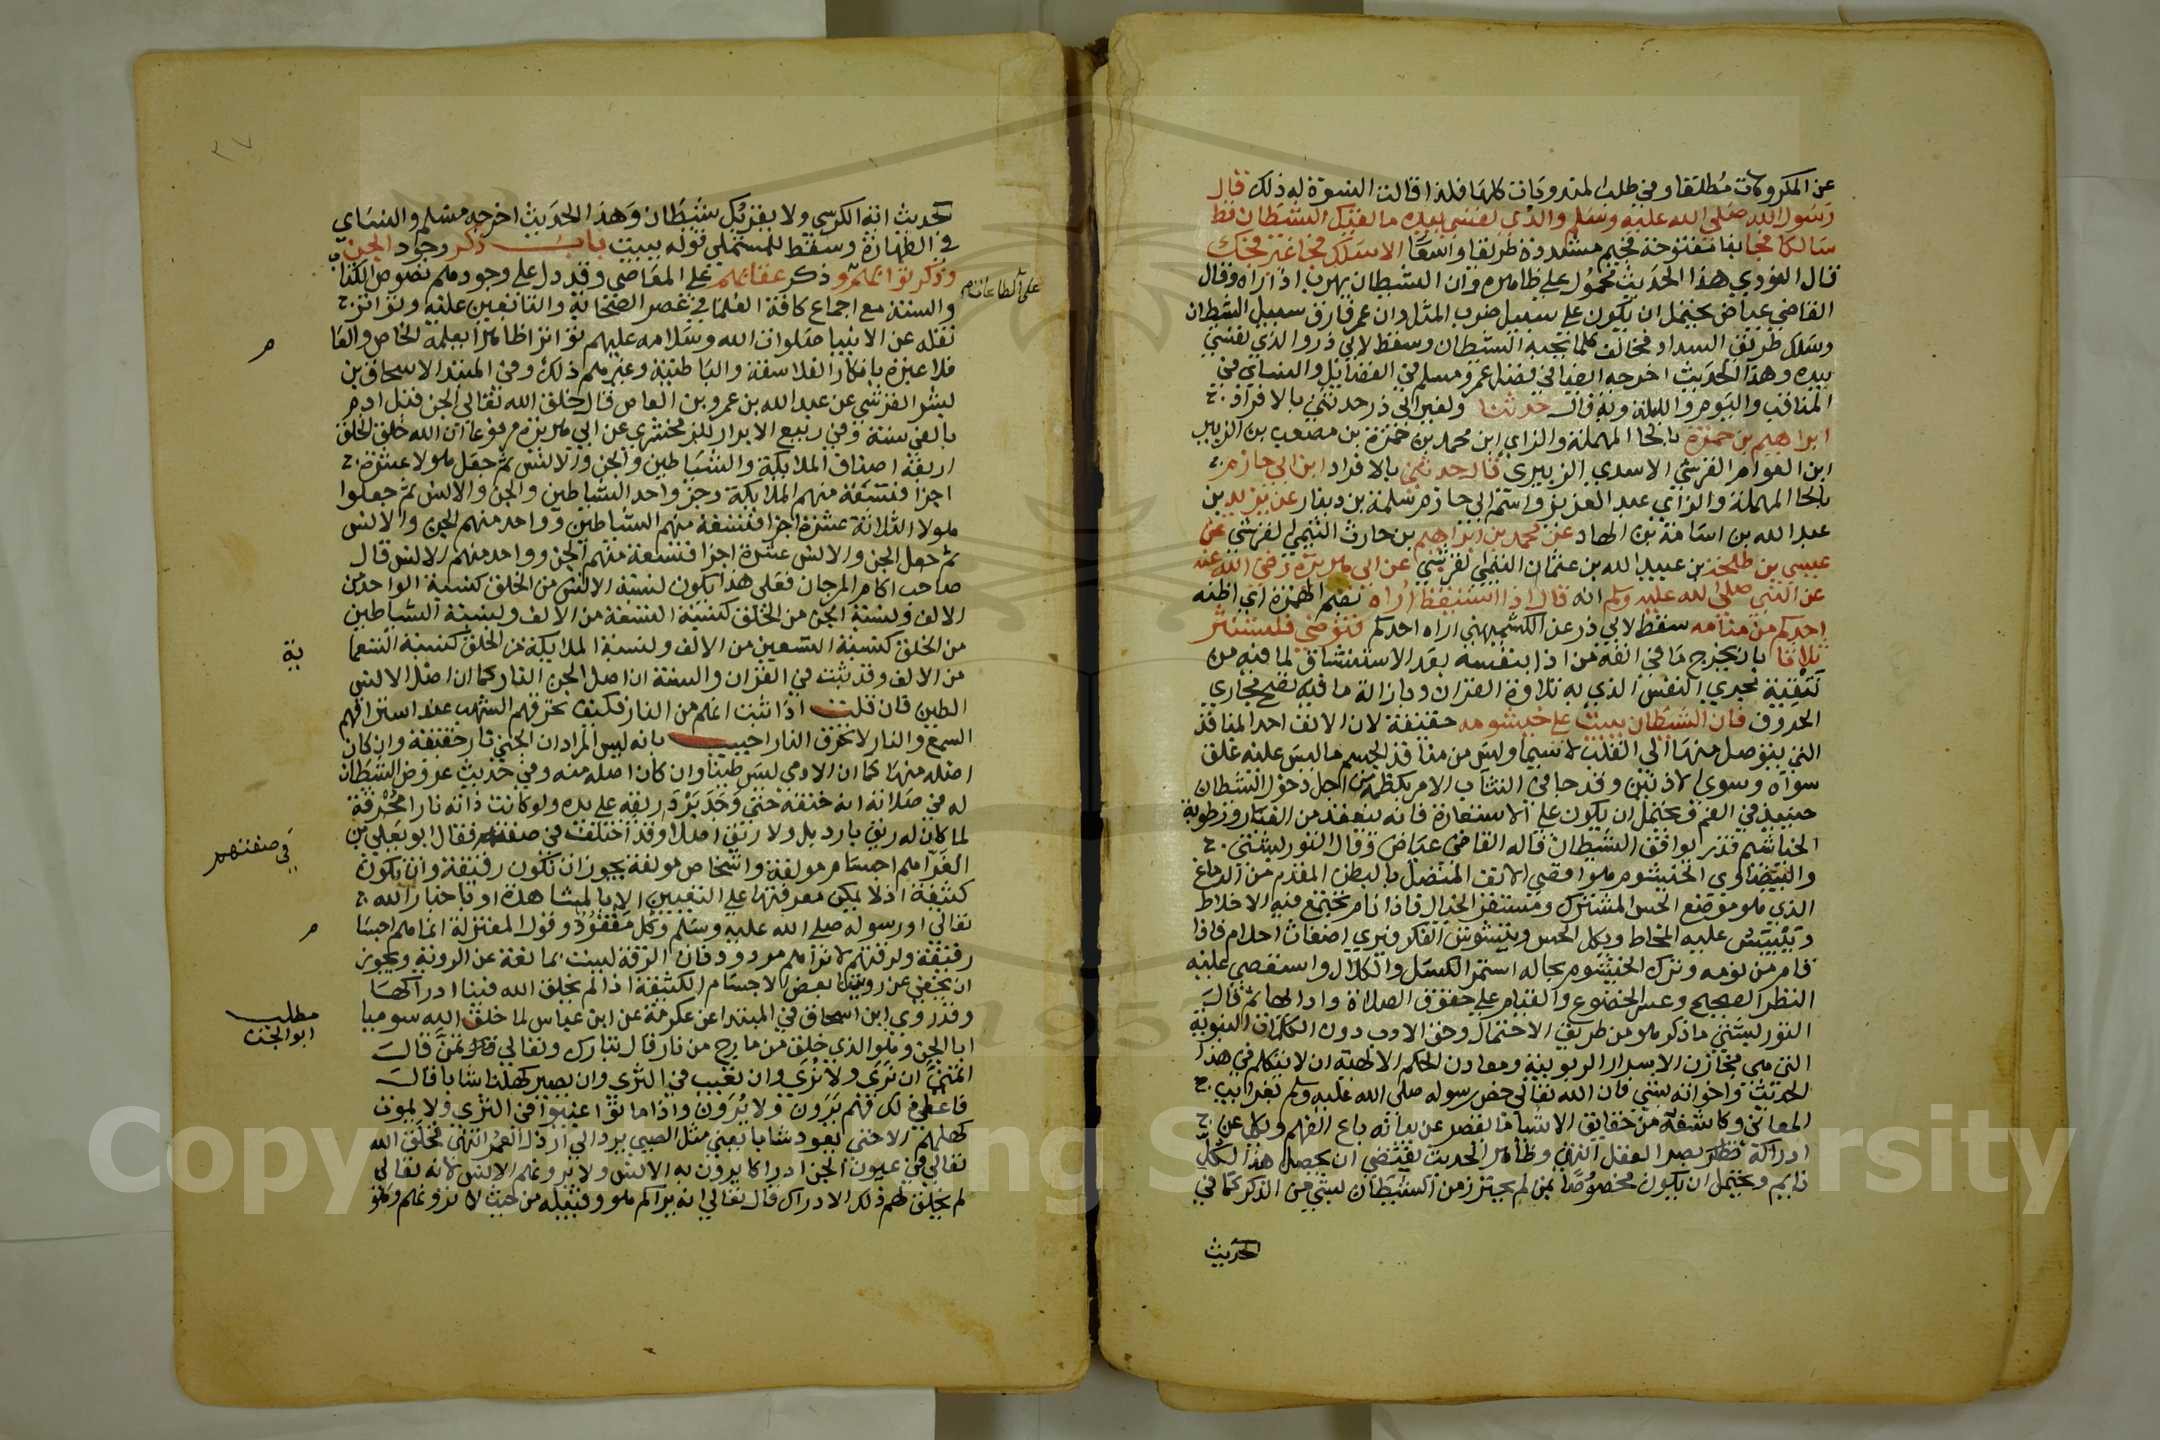 عن المكروهات مطلقا وفي طلب المندوبات كلها فلذا قالت النسوة له ذلك قال
رسول الله صلى الله عليه وسلم والذي نفسي بيده ما لقيك الشيطان قط
سالكا فجا بفا مفتوحة فجيم مشددة طريقا واسعا الا سلك فجا غير فجك
قال النووي هذا الحديث محمول على ظاهره وان الشيطان يهرب اذا راه وقال
القاضي عياض يحتمل ان يكون على سبيل ضرب المثل وان عمر فارق سبيل الشيطان
وسلك طريق السداد فخالف كلما يحبه الشيطان وسقط لابي ذر والذي نفسي
بيده وهذا الحديث اخرجه ايضا في فضل عمر ومسلم في الفضايل والنساي في
المناقب واليوم والليلة وبه قال حدثنا ولغير ابي ذر حدثني بالافراد
ابراهيم بن حمزة بالحا المهملة والزاي ابن محمد بن حمزة بن مصعب بن الزبير
ابن العوام القرشي الاسدي الزبيري قال حدثني بالافراد ابن ابي حازم
بالحا المهملة والزاي عبد العزيز واسم ابي حازم سلمة بن دينار عن يزيد بن
عبد الله بن اسامة بن الهاد عن محمد بن ابراهيم بن حارث التيمي القرشي عن
عيسى بن طلحة بن عبيد الله بن عثمان التيمي القرشي عن ابي هريرة رضي الله عنه
عن النبي صلى الله عليه وسلم انه قال اذا استيقظ اراه بضم الهمزة اي اظنه
احدكم من منامه سقط لابي ذر عن الكشميهني اراه احدكم فتوضى فليستنثر
ثلاثا بان يخرج ما في انفه من اذا بنفسه بعد الاستنشاق لما فيه من
تنقية مجرى النفس الذي به تلاوة القران وبازالة ما فيه تصح مجاري
الحروف فان الشيطان يبيت على خيشومه حقيقة لان الانف احد المنافذ
التي يتوصل منها الى القلب لاسيما وليس من منافذ الجسم ما ليس عليه غلق
سواه وسوى الاذنين وقد جا في التثاب الامر بكظمه من اجل دخول الشيطان
حينيذ في الفم ويحتمل ان يكون على الاستعارة فانه ينعقد من الغبار ورطوبة
الخياشيم قذر يوافق الشيطان قاله القاضي عياض وقال التوربشتي
والبيضاوي الخيشوم هو اقصى الانف المتصل بالبطن المقدم من الدماغ
الذي هو موضع الحس المشترك ومستقر الخيال فاذا نام تجتمع فيه الاخلاط
وييبس عليه المخاط ويكل الحس ويتشوش الفكر فيرى اضغاث احلام فاذا
قام من نومه وترك الخيشوم بحاله استمر الكسل والكلال واستعصى عليه
النظر الصحيح وعسر الخضوع والقيام على حقوق الصلاة وادابها ثم قال
التوربشتي ما ذكر هو من طريق الاحتمال وحق الادب دون الكلمات النبوية
التي هي مخازن الاسرار الربوبية ومعادن الحكم الالهية ان لا يتكلم في هذا
الحديث واخواته بشي فان الله تعالى خص رسوله صلى الله عليه وسلم بغرايب
المعاني وكاشفه من حقايق الاشيا ما يقصر عن بيانه باع الفهم ويكل عن
ادراكه بصر العقل انتهى وظاهر الحديث يقتضي ان يحصل هذا لكل
نايم ويحتمل ان يكون مخصوصا بمن لم يحترز من الشيطان بشي من الذكر كما في
الحديث
٣٧
حديث اية الكرسي ولا يقربك شيطان وهذا الحديث اخرجه مسلم والنساي
في الطهارة وسقط للمستملي قوله ببيت باب ذكر وجود الجن
وذكر ثوابهم وذكر عقابهم على المعاصي وقد دل على وجودهم نصوص الكتاب
على الطاعات
والسنة مع اجماع كافة العلما في عصر الصحابة والتابعين عليه وتواتر
نقله عن الانبيا صلوات الله وسلامه عليهم تواترا ظاهرا يعلمه الخاص والعا
م
فلا عبرة بانكار الفلاسفة والباطنية وغيرهم ذلك وفي المبتدا لاسحاق بن
بشر القرشي عن عبد الله بن عمرو بن العاص قال خلق الله تعالى الجن قبل ادم
بالفي سنة وفي ربيع الابرار للزمخشري عن ابي هريرة مرفوعا ان الله خلق الخلق
اربعة اصناف الملايكة والشياطين والجن والانس ثم جعل هولا عشرة
اجزا فتسعة منهم الملايكة وجزو واحد الشياطين والجن والانس ثم جعلوا
هولا الثلاثة عشرة اجزا فتسعة منهم الشياطين وواحد منهم الجن والانس
ثم جعل الجن والانس عشرة اجزا فتسعة منهم الجن وواحد منهم الانس قال
صاحب اكام المرجان فعلى هذا يكون نسبة الانس من الخلق كنسبة الواحد من
الالف ونسبة الجن من الخلق كنسبة التسعة من الالف ونسبة الشياطين
من الخلق كنسبة التسعين من الالف ونسبة الملايكة من الخلق كنسبة التسعما
ية
من الالف وقد ثبت في القران والسنة ان اصل الجن النار كما ان اصل الانس
الطين فان قلت اذا ثبت انهم من النار فكيف تحرقهم الشهب عند استراقهم
السمع والنار لا تحرق النار اجيب بانه ليس المراد ان الجني نار حقيقة وان كان
اصله منها كما ان الادمي ليس طينا وان كان اصله منه وفي حديث عروض الشيطان
له في صلاته انه خنقه حتى وجد برد ريقه على يده ولو كانت ذاته نارا محرقة
لما كان له ريق بارد بل ولا ريق اصلا وقد اختلف في صفتهم فقال ابو يعلى بن
في صفتهم
الفرا هم اجسام مولفة واشخاص مولفة يجوز ان تكون رقيقة وان تكون
كثيفة اذ لا يمكن معرفتها على التعيين الا بالمشاهدة او باخبار الله
تعالى او رسوله صلى الله عليه وسلم وكل مفقود وقول المعتزلة انما هم اجسا
م
رقيقة ولرقتهم لا نراهم مردود فان الرقة ليست بمانعة عن الروية ويجوز
ان يخفى عن رويتنا بعض الاجسام الكثيفة اذا لم يخلق الله فينا ادراكها
وقد روى ابن اسحاق في المبتدا عن عكرمة عن ابن عباس لما خلق الله سوميا
مطلب
ابو الجن
ابا الجن وهو الذي خلق من مارج من نار قال تبارك وتعالى تمن قال
اتمنى ان نرى ولا نرى وان نغيب في الثرى وان يصير كهلنا شابا قال
فاعطي ذلك فهم يرون ولا يرون واذا ماتوا غيبوا في الثرى ولا يموت
كهلهم الا حتى يعود شابا يعني مثل الصبي يرد الى ارذل العمر انتهى فخلق الله
تعالى في عيون الجن ادراكا يرون به الانس ولا يرونهم الانس لانه تعالى
لم يخلق لهم ذلك الادراك قال تعالى انه يراكم هو وقبيله من حيث لا ترونهم وهو